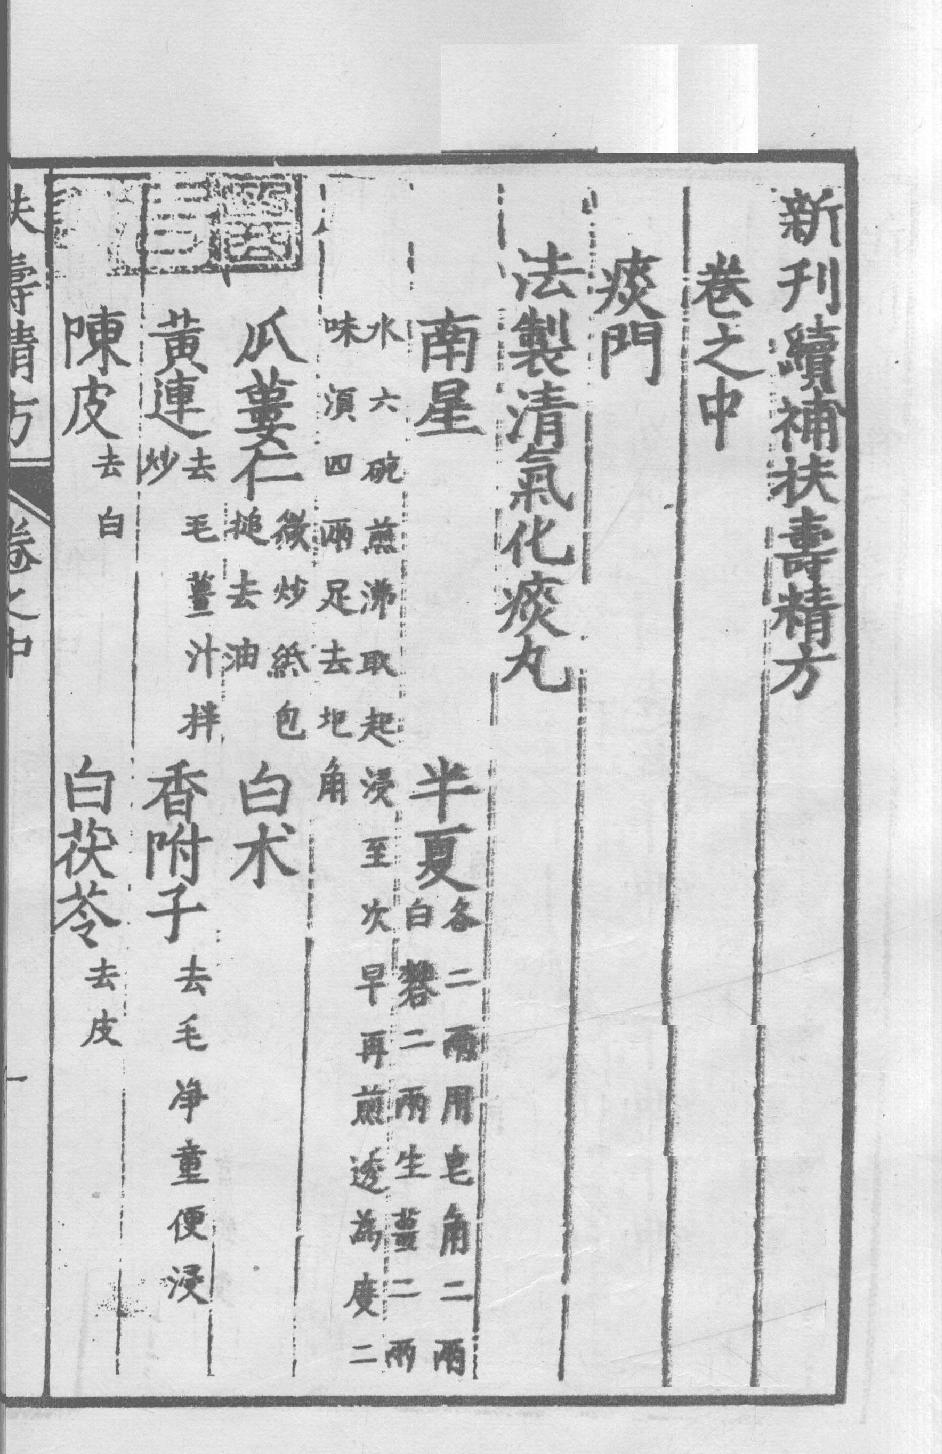 新刊續補扶壽精方
卷之中
痰門
法製清氣化痰丸
南星　半夏各二兩用皂角二兩
白礬二兩生薑二兩
水六碗煎沸取起浸至次早再煎透為度二
味湏四兩足去角
瓜蔞仁微炒紙包
搥去油　白术
黃連去毛薑汁拌
炒　香附子去毛净童便浸
陳皮去白　白茯苓去皮
扶壽精方　卷之中　一